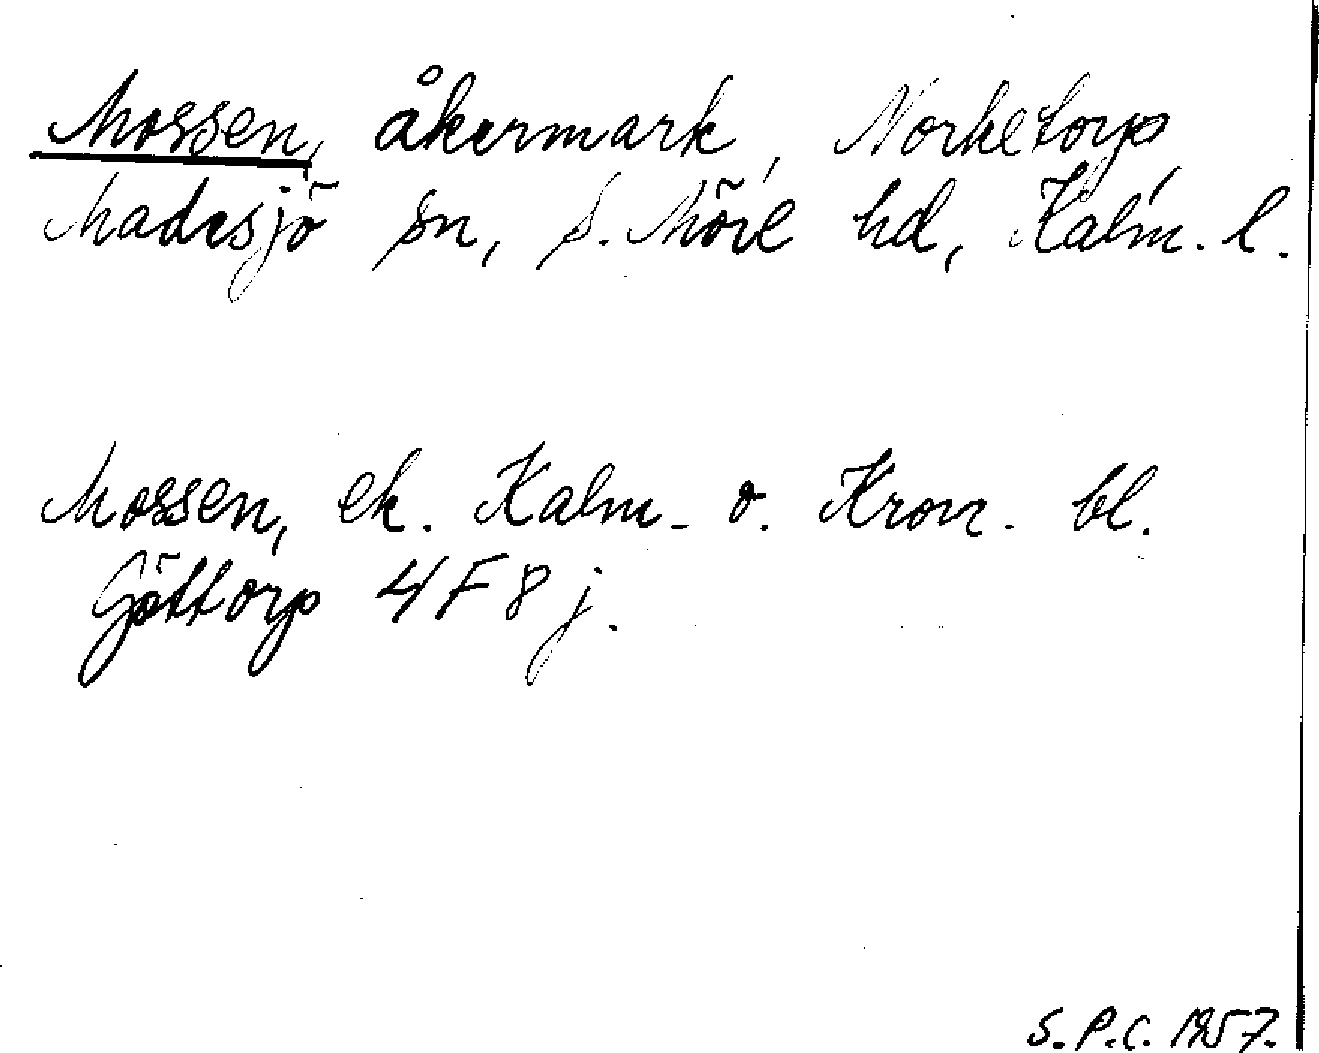 Mossen, åkermark, Norketorp
Madesjö sn, S. Möre hd, Kalm. l.
Mossen, ek. Kalm. o. Kron. bl.
Göttorp 4F8j.
S.P.C. 1957.